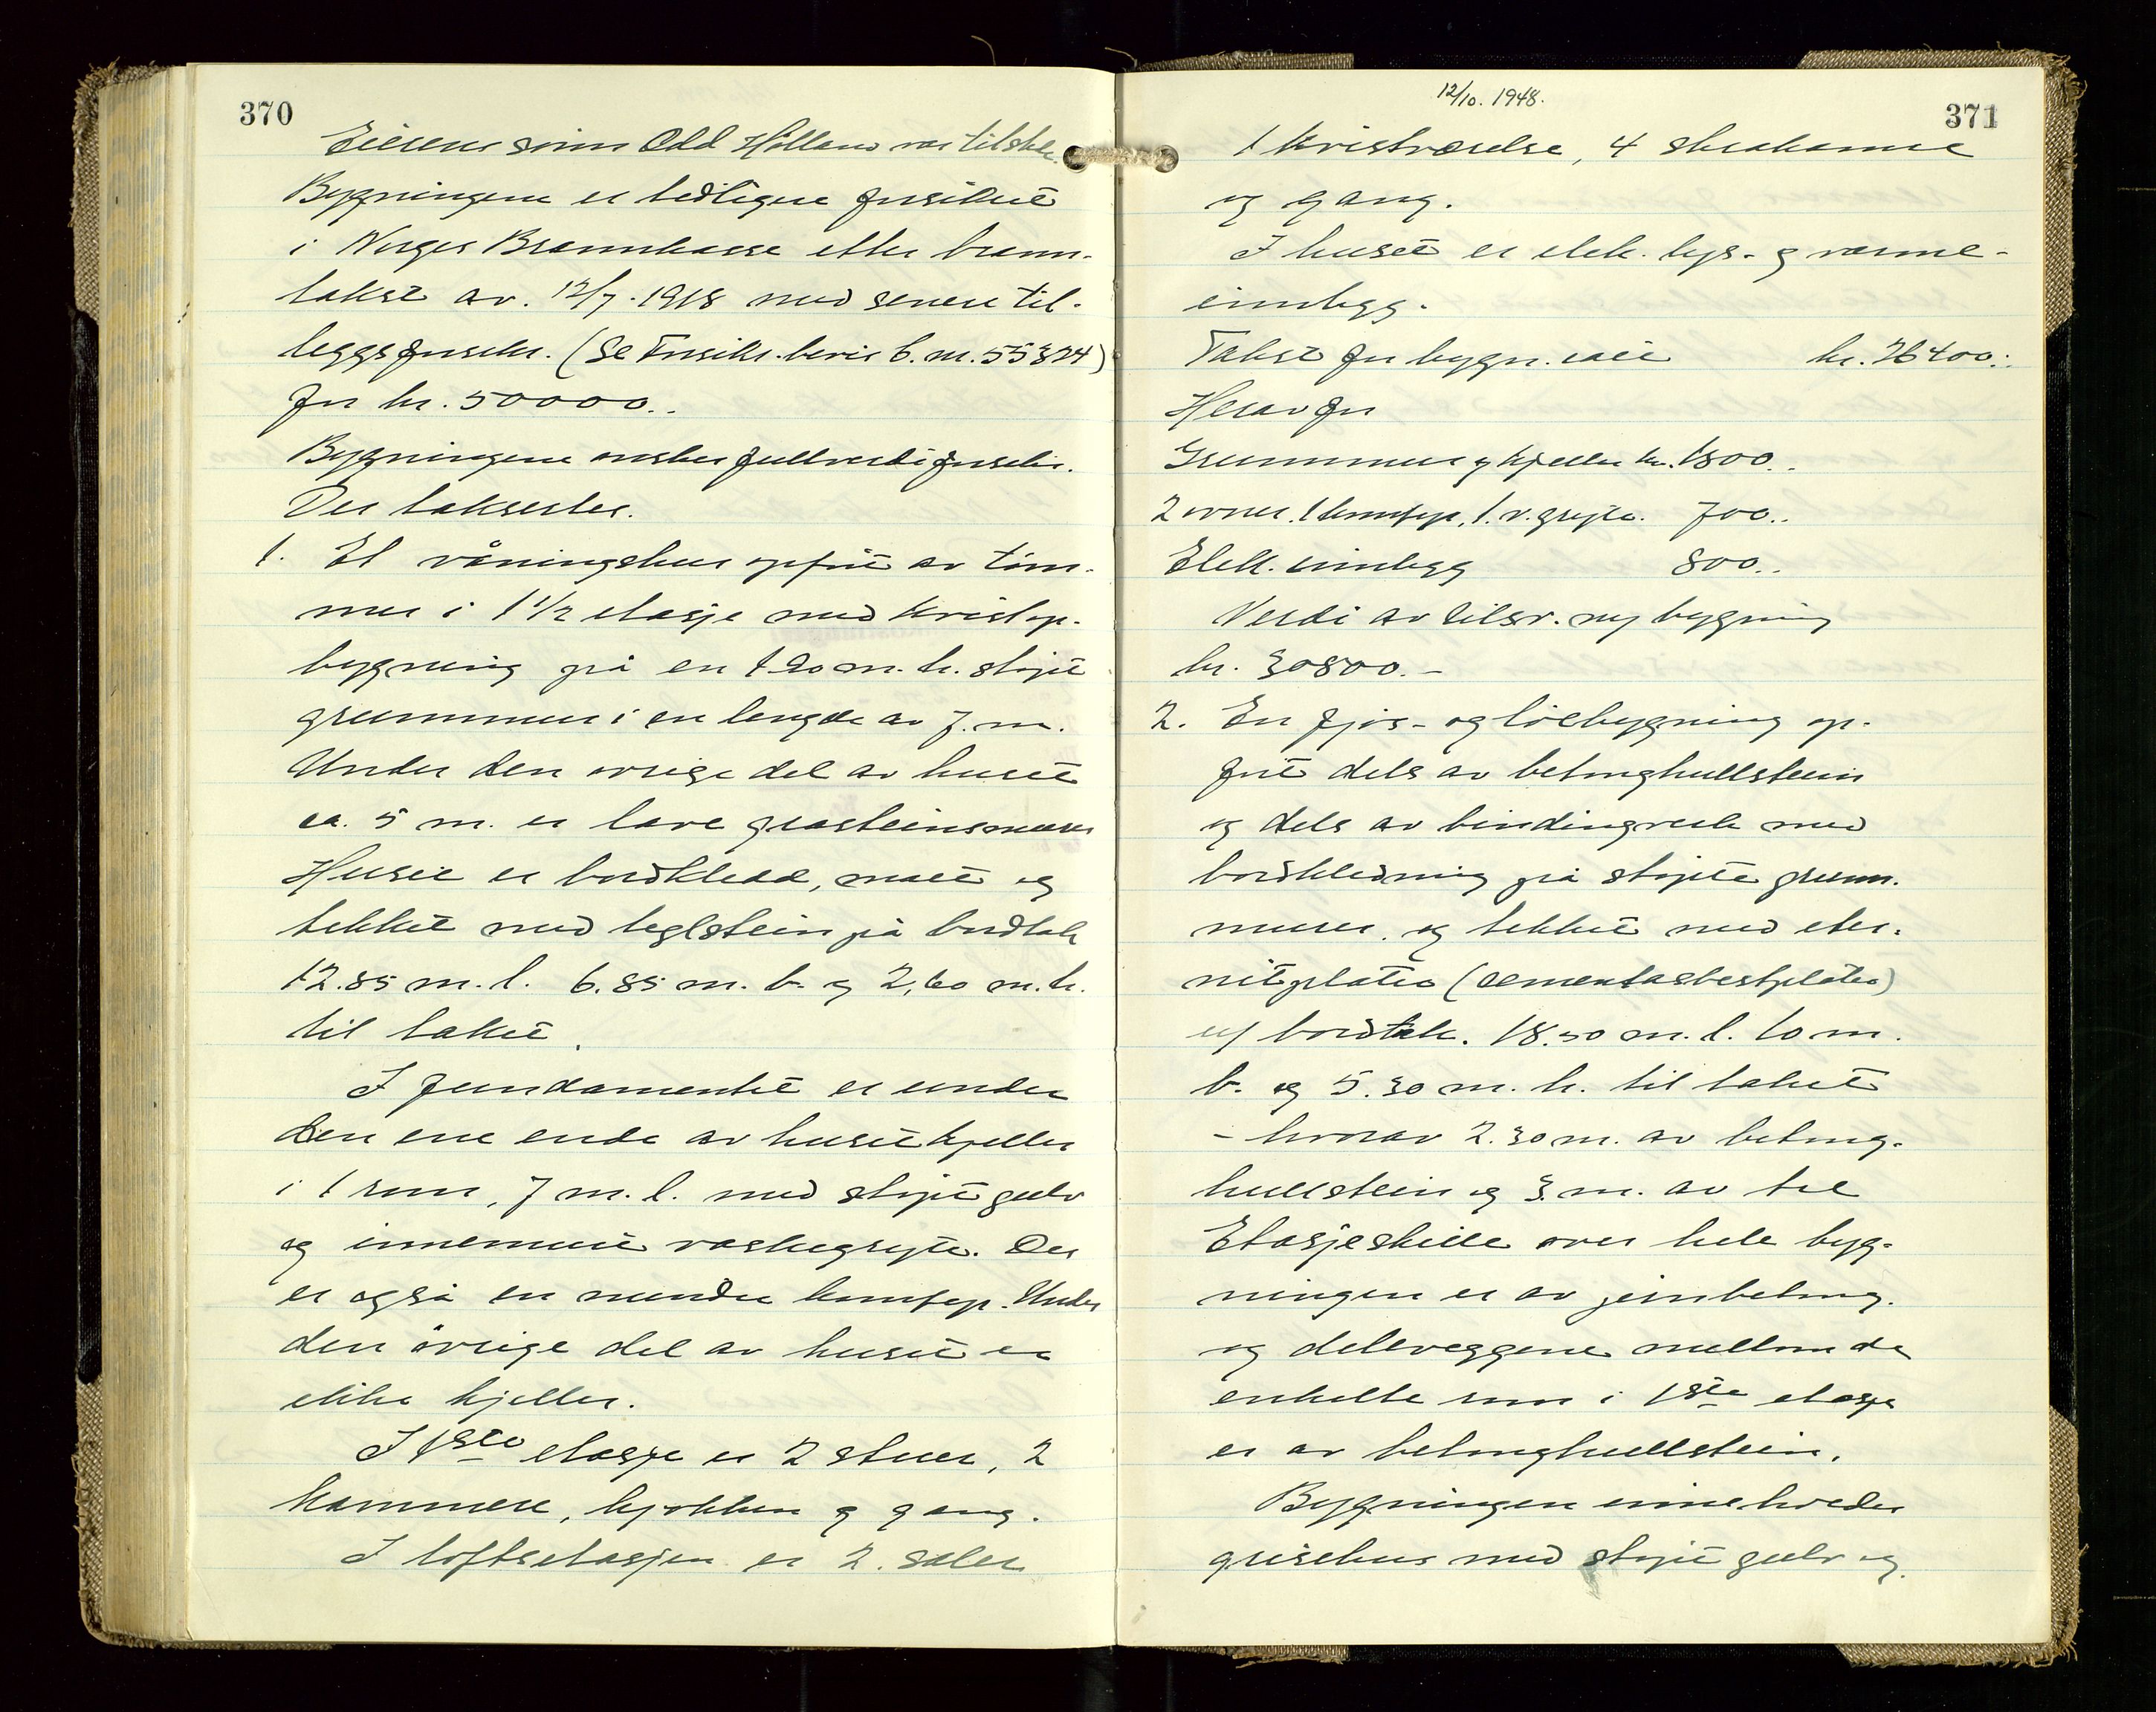 370
Eierens sønn Odd Hølland var tilstede.
Bygningene er tidligere forsikret
i Norges Brannkasse efter brann-
takst av. 12/7. 1918 med senere til-
leggsforsikr. (Se Forsikr. bevis b. nr. 55324)
for kr. 50000..
Bygningene ønskes fullverdiforsikr.
Der taksertes.
1. Et våningshus opført av tøm-
mer i 1 1/2 etasje med kvistop-
bygning på en 1.90 m. h. støpt
grunnmur i en lengde av 7. m.
Under den øvrige del av huset
ca. 5 m. er lave gråsteinsmurer
Huset er bordkledd, malt og
tekket med teglstein på bordtak
12.85 m. l. 6.85 m. b. og 2,60 m. h.
til taket.
I fundamentet er under
den ene ende av huset kjeller
i 1 rom, 7 m. l. med støpt gulv
og innemuret vaskegryte. Der
er også en mindre komfyr. Under
den øvrige del av huset er
ikke kjeller.
I 1ste etasje er 2 stuer, 2
kammere, kjøkken og gang.
I loftsetasjen er 2. saler
12/10. 1948.
371
1 kvistværelse, 4 skråkamre
og gang.
I huset er elek. lys- og varme-
innlegg.
Takst for bygn. idet kr. 26400..
Herav for
Grunnmur og kjeller kr. 1800..
2 ovner. 1 komfyr, 1. v. gryte. 700..
Elek. innlegg 800..
Verdi av tilsv. ny bygning
kr. 30800.-
2. En fjøs- og løebygning op-
ført dels av betonghullstein
og dels av bindingverk med
bordkledning på støpte grunn-
murer. og tekket med eter-
nitplater (cementasbestplater)
u/ bordtak. 18.50 m. l. 10 m.
b. og 5.30 m. h. til taket
- hvorav 2.30 m. av betong-
hullstein og 3. m. av tre
Etasjeskille over hele byg-
ningen er av jernbetong.
og deleveggene mellom de
enkelte rom i 1ste etasje
er av betonghullstein.
Bygningen inneholder
grisehus med støpt gulv og